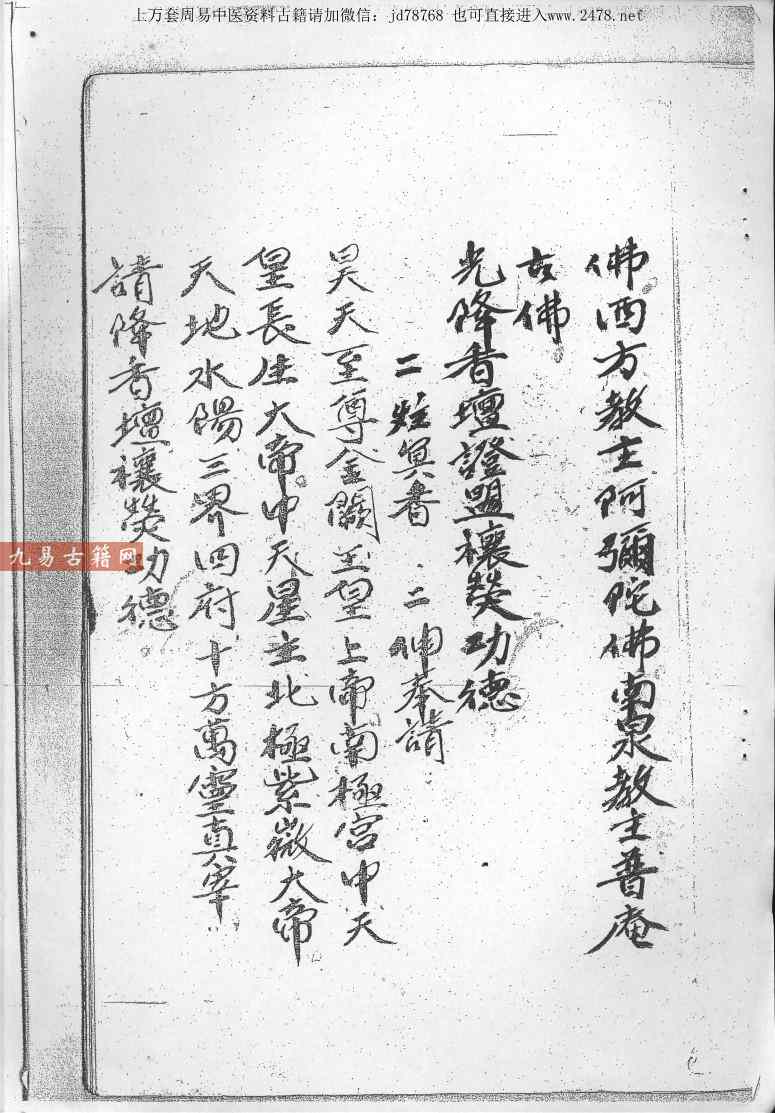 上万套周易中医资料古籍请加微信：jd78768 也可直接进入www.2478.net
佛西方教主阿彌陀佛南泉教主普庵
古佛
光降香壇證盟禳熒功德
二炷冥香 二伸奉請
昊天至尊金闕玉皇上帝南極宮中天
皇長生大帝中天星主北極紫微大帝
天地水陽三界四府十方萬靈真宰
請降香壇禳熒功德
九易古籍网